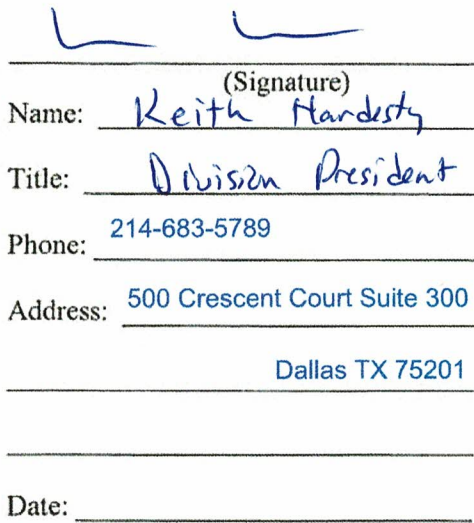 (Signature)
Name: Keith Hardesty
Title: Division President
Phone: 214-683-5789
Address: 500 Crescent Court Suite 300
Dallas TX 75201
Date: